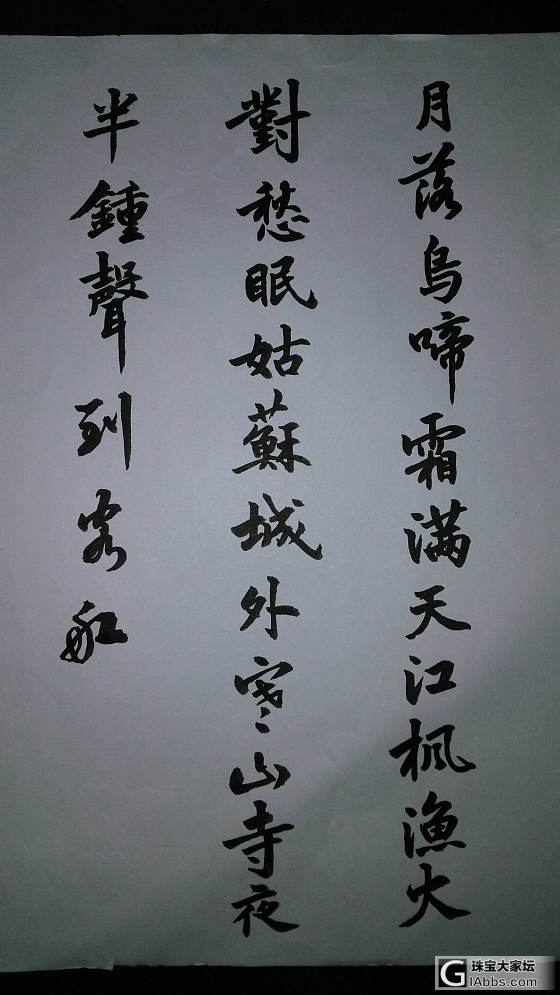 月落烏啼霜满天江枫漁火
對愁眠姑蘇城外寒山寺夜
半鍾聲到客船
珠宝大家坛
GIAbbs.com